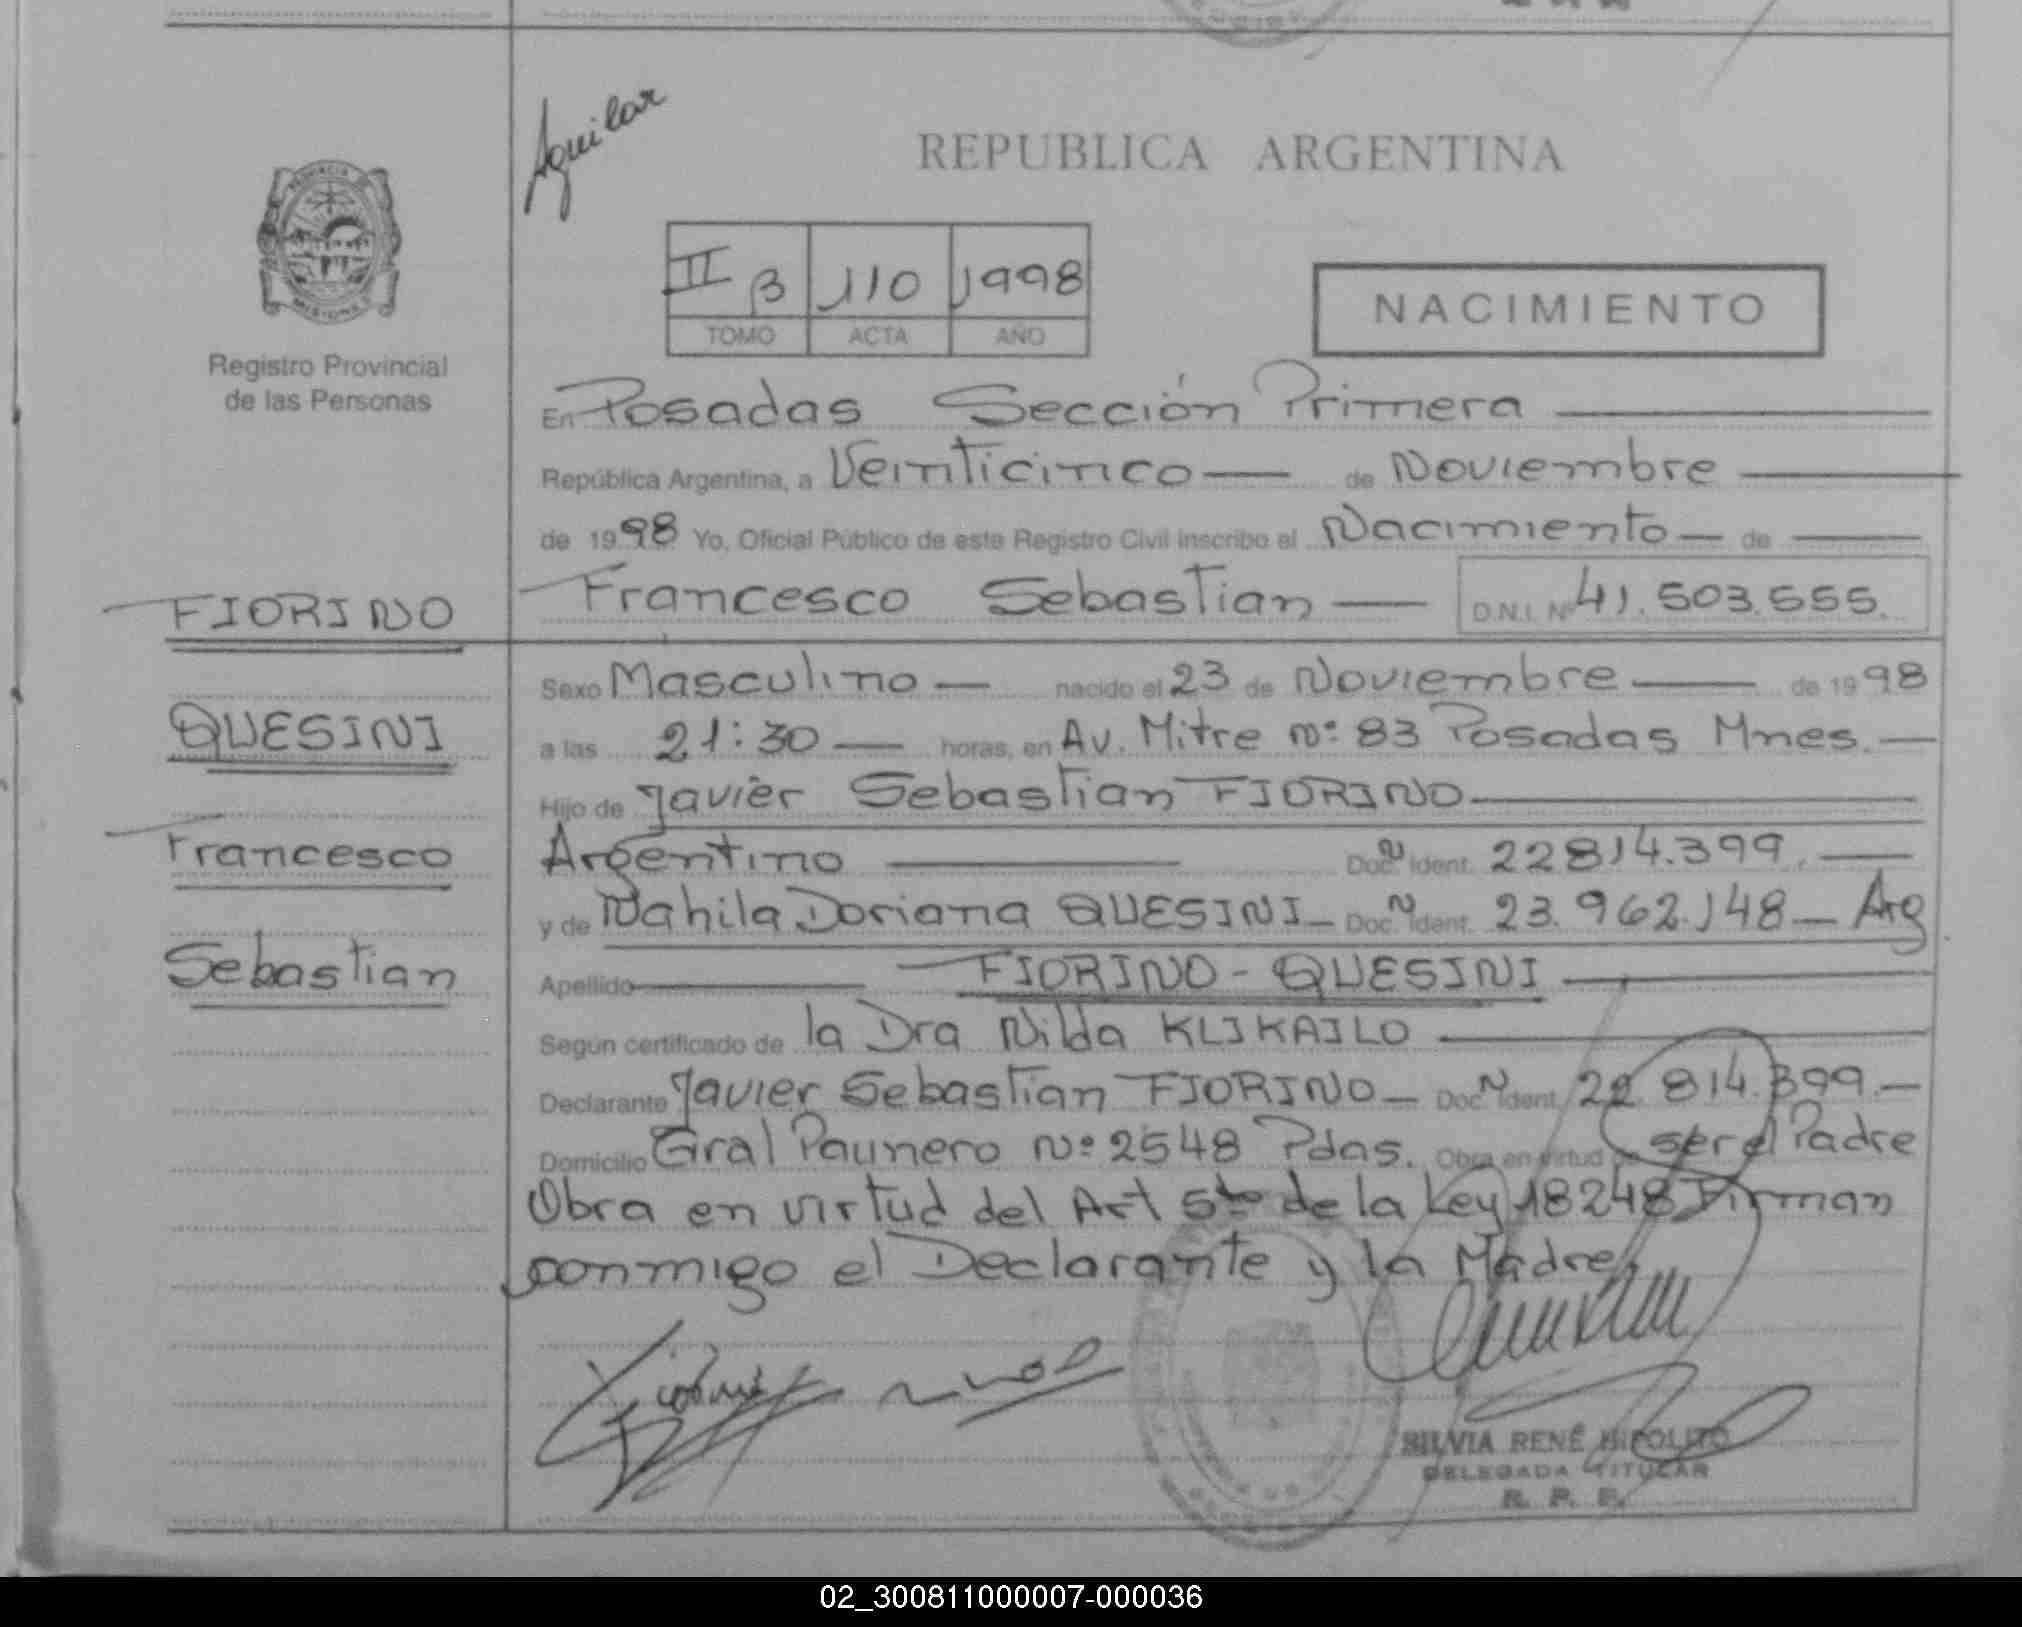 Aguilar
REPUBLICA ARGENTINA
II B 110 1998
TOMO ACTA AÑO
NACIMIENTO
Registro Provincial
de las Personas
En Posadas Sección Primera
República Argentina, a Veinticinco de Noviembre
de 1998 Yo, Oficial Público de este Registro Civil inscribo el Nacimiento de
Francesco Sebastian D.N.I. Nº 41.503.555.
FIORINO
QUESINI
Francesco
Sebastian
Sexo Masculino nacido el 23 de Noviembre de 1998
a las 21:30 horas, en Av. Mitre Nº 83 Posadas Mnes.
Hijo de Javier Sebastian FIORINO
Argentino Doc. Ident. 22814.399.
y de Nahila Doriana QUESINI Doc. Ident. 23.962.148 Arg
Apellido FIORINO - QUESINI
Según certificado de la Dra Nilda KLIKAILO
Declarante Javier Sebastian FIORINO Doc. Ident. 22.814.399.
Domicilio Gral Paunero Nº 2548 Pdas. Obra en virtud de ser el Padre
Obra en virtud del Art 5to de la Ley 18248 Firman
conmigo el Declarante y la Madre
SILVIA RENÉ HIPOLITO
DELEGADA TITULAR
R. P. P.
02_300811000007-000036